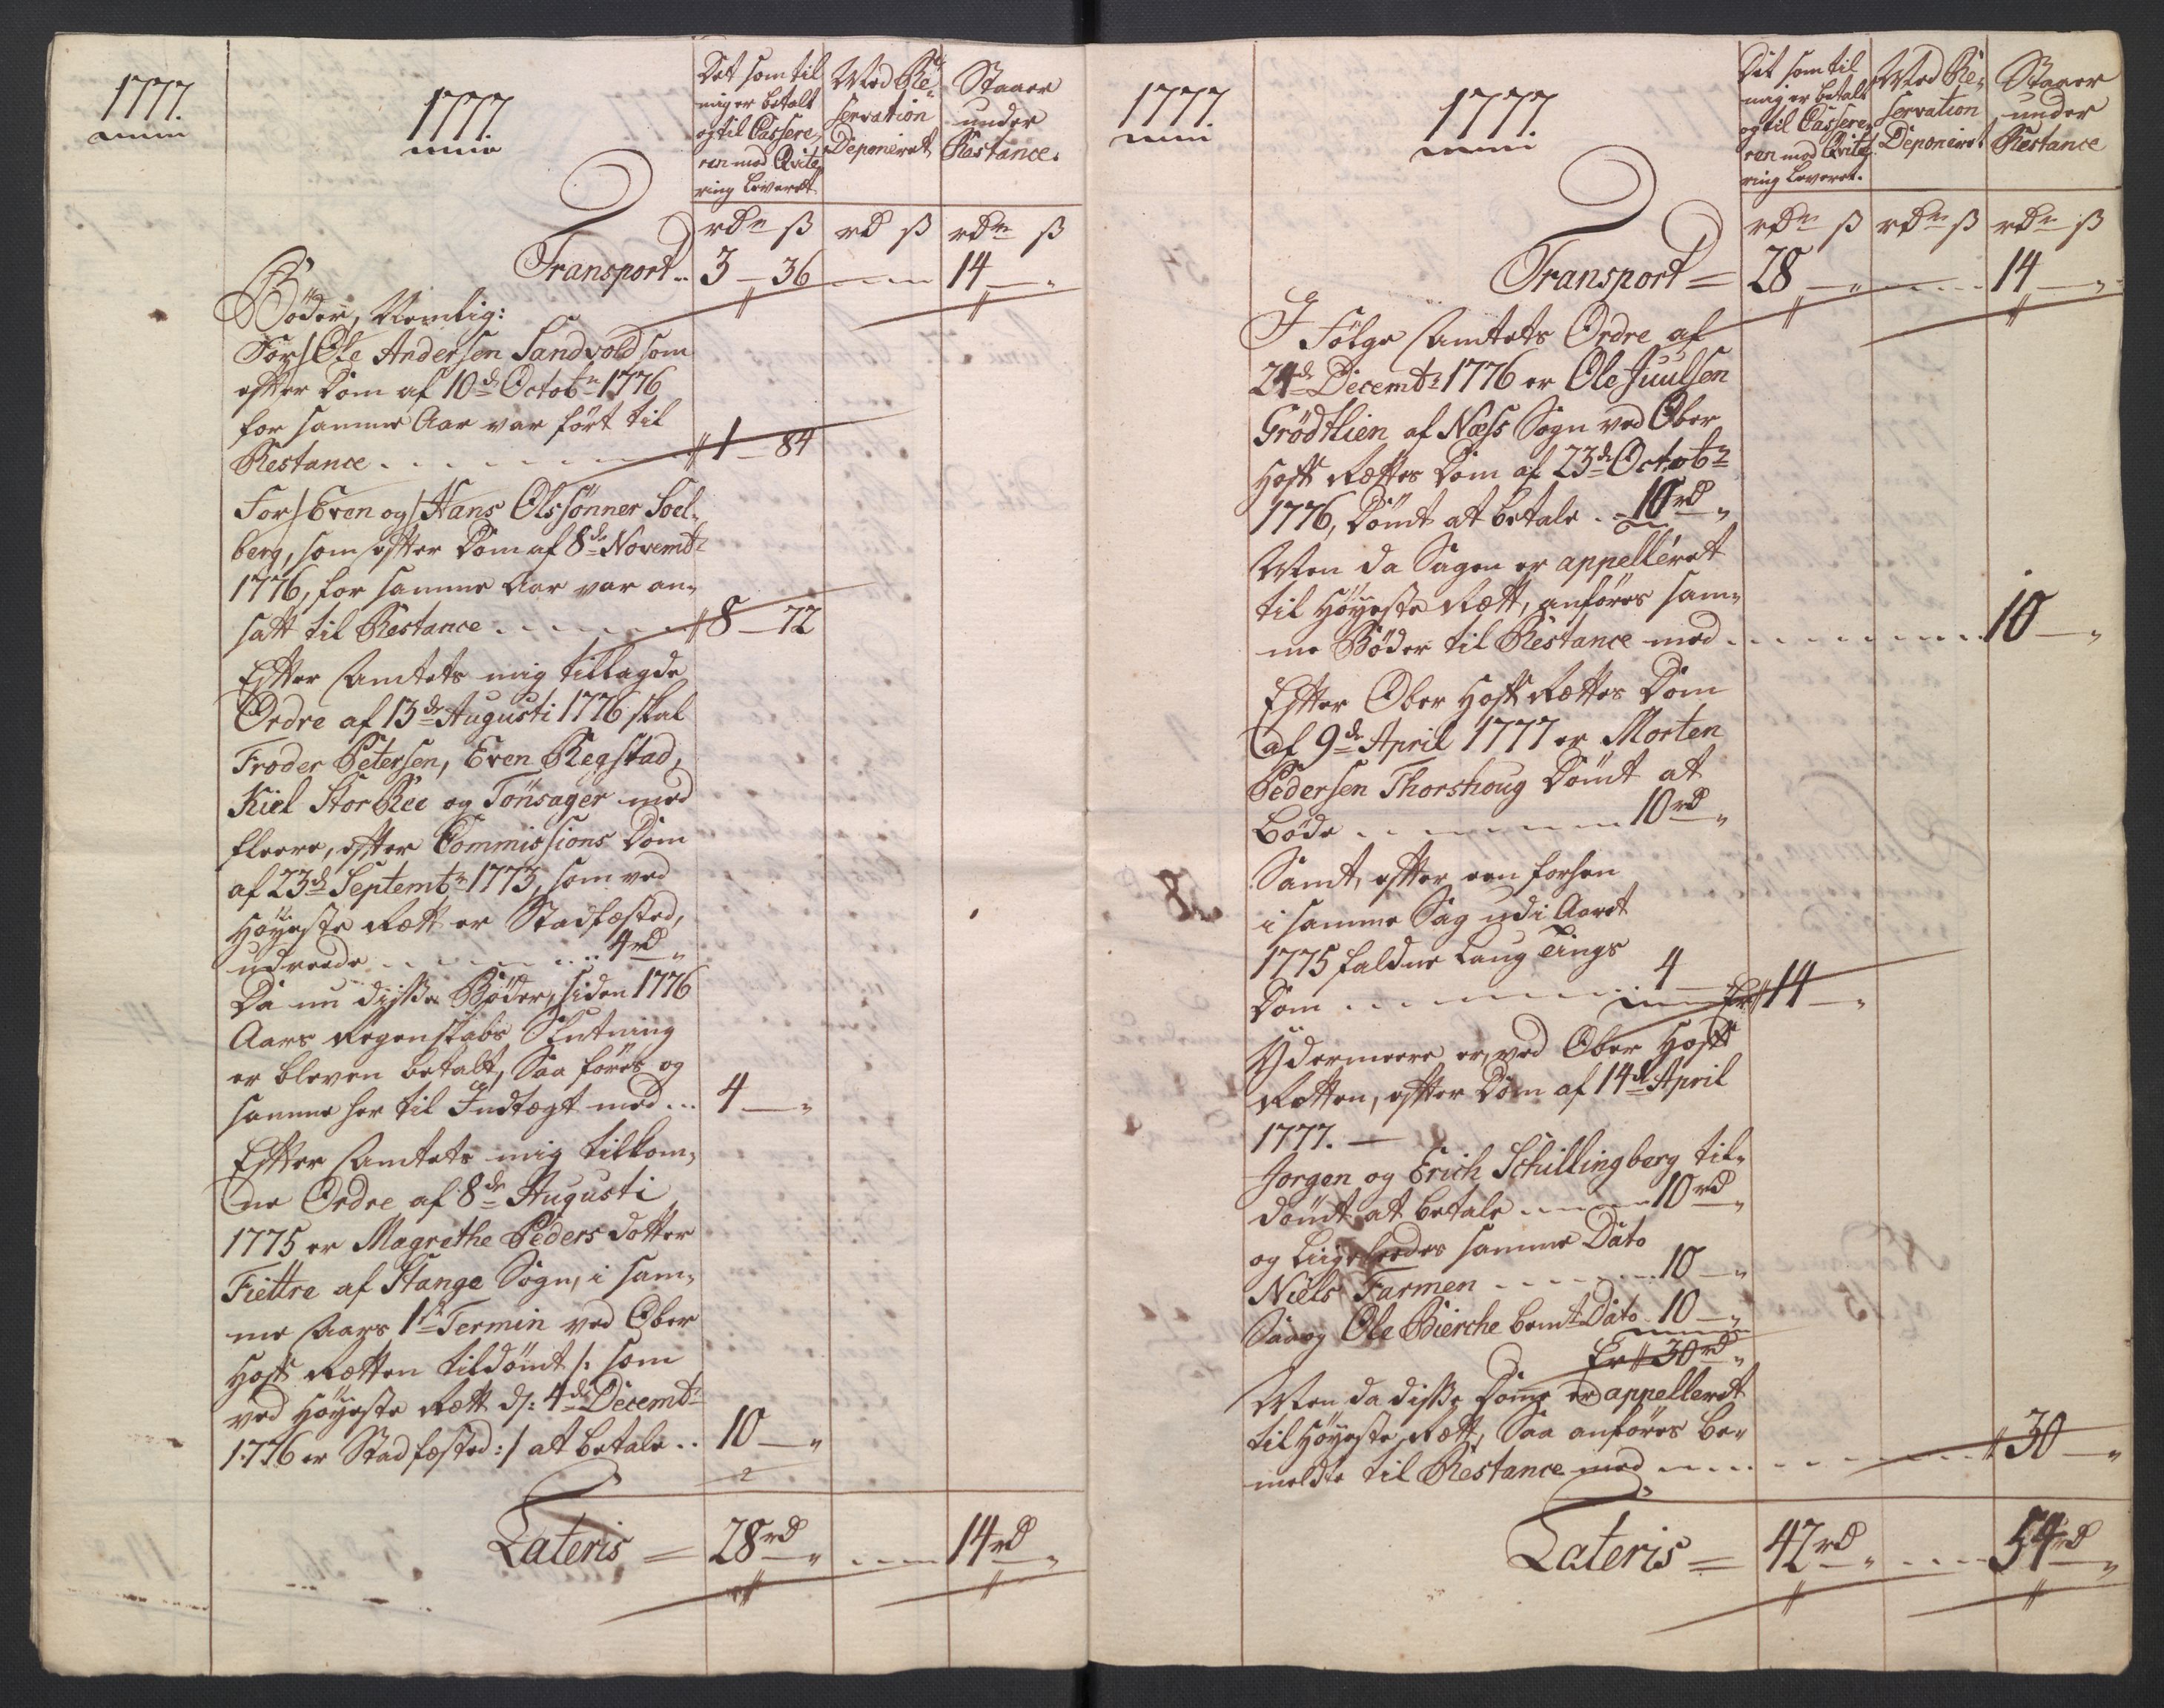 1777.
1777.
Det som til
mig er betalt
og til Cassere-
ren med Qvite-
ring leveret.
Med Re-
servation
Deponeret
Staaer
under
Restance.
rdr ß rd ß rdr ß
Transport .. 3 — 36 — 14 — „
Bøder, Nemlig:
For Ole Andersen Sandvold som
efter Dom af 10de Octobr 1776
for samme Aar var ført til
Restance . . . . . . . 1 — 84
For Even og Hans Olssønner Soel-
berg, som efter Dom af 8de Novembr
1776, for samme Aar var an-
satt til Restance . . . . . 8 — 72
Efter Amtets mig tillagde
Ordre af 13de Augusti 1776 skal
Froder Petersen, Even Regstad,
Kiel Stor Ree og Tønsager med
fleere, efter Commissions Dom
af 23de Septembr 1773, som ved
Høyeste Rætt er Stadfæsted,
udreede . . . . . . 4 rd „
Da nu disse Bøder, siden 1776
Aars Regenskabs Slutning
er bleven betalt, Saa føres og
samme her til Indtægt med .. 4 — „
Efter Amtets mig tilkom-
ne Ordre af 8de Augusti
1775 er Magrethe Peders dotter
Fiettre af Stange Sogn, i sam-
me Aars 1ste Termin ved Ober
Hoff Rætten tildømt /: som
ved Høyeste Rætt d: 4de Decembr
1776 er Stadfæsted :/ at betale .. 10 — „
Lateris = 28 rd „ .... 14 rd „
1777.
1777.
Det som til
mig er betalt
og til Cassere-
ren med Qvite-
ring leveret.
Med Re-
servation
Deponeret
Staaer
under
Restance
rdr ß rdr ß rdr ß
Transport = 28 — „ .... 14 — „
I Følge Amtets Ordre af
24de Decembr 1776 er Ole Juulsen
Grødtlien af Næss Sogn ved Ober
Hoff Rættes Dom af 23de Octobr
1776, Dømt at betale .. 10 rd „
Men da Sagen er appelléret
til Høyeste Rætt, anføres sam-
me Bøder til Restance med . . . . . 10 — „
Efter Ober Hoff Rættes Dom
af 9de April 1777 er Morten
Pedersen Thorshoug Dømt at
bøde . . . . . . 10 rd „
Samt, efter een forhen
i samme Sag udi Aaret
1775 faldne Laug Tings
Dom . . . . . . 4 — Er 14 — „
Ydermeere er, ved Ober Hoff
Rætten, efter Dom af 14de April
1777. —
Jørgen og Erich Schillingberg til-
dømt at betale . . . . 10 rd „
og liigeledes samme Dato
Niels Farmen . . . . . 10 — „
Saa og Ole Bierche bemte Dato 10 — „
Er 30 rd „
Men da disse Domme er appelleret
til Høyeste Rætt, Saa anføres be-
meldte til Restance med . . . . . . 30 — „
Lateris = 42 rd „ .... 54 rd „